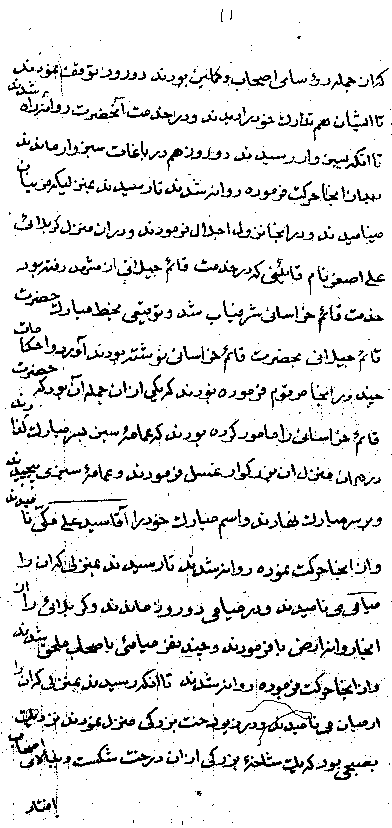 که از آن جمله رؤسای اصحاب و مکملین بودند دو روز توقف نمودند
تا ایشان هم تدارک خود را دیدند و در خدمت آنحضرت روانه راه شدند
تا آنکه بسبزوار رسیدند دو روز هم در باغات سبزوار ماندند
بعد از آنجا حرکت فرموده روانه شدند تا رسیدند بمنزلیکه مزینان
مینامیدند و در آنجا نزول اجلال فرمودند و در آن منزل کربلائی
علی اصغر نام قائینی که در خدمت قائم جیلانی از مشهد رفته بود
خدمت قائم خراسانی شرفیاب شد و توقیعی بخط مبارک حضرت
قائم جیلانی بحضرت قائم خراسانی نوشته بودند آورد و احکامات
چند در آنجا مرقوم فرموده بودند که یکی از آن جمله آن بود که حضرت
قائم خراسانی را مامور کرده بودند که عمامه سبز بسر مبارک گذارند
در همان منزل آن بزرگوار غسل فرمودند و عمامه سبزی پیچیدند
و بر سر مبارک نهادند و اسم مبارک خود را آقا سید علی مکی نامیدند
و از آنجا حرکت نموده روانه شدند تا رسیدند بمنزلی که آن را
میامی می نامیدند و در میامی دو روز ماندند و کربلائی را از آن
آنجا روانه ارض با فرمودند و چند نفر میامئی باصحاب ملحق شدند
و از آنجا حرکت فرموده روانه شدند تا آنکه رسیدند بمنزلی که آن را
ارمیان می نامیدند و در زیر درخت بزرگی منزل نمودند نزدیک
بصبحی بود که یک شاخه بزرگی از آن درخت شکست و ببالای اصحاب
افتاد